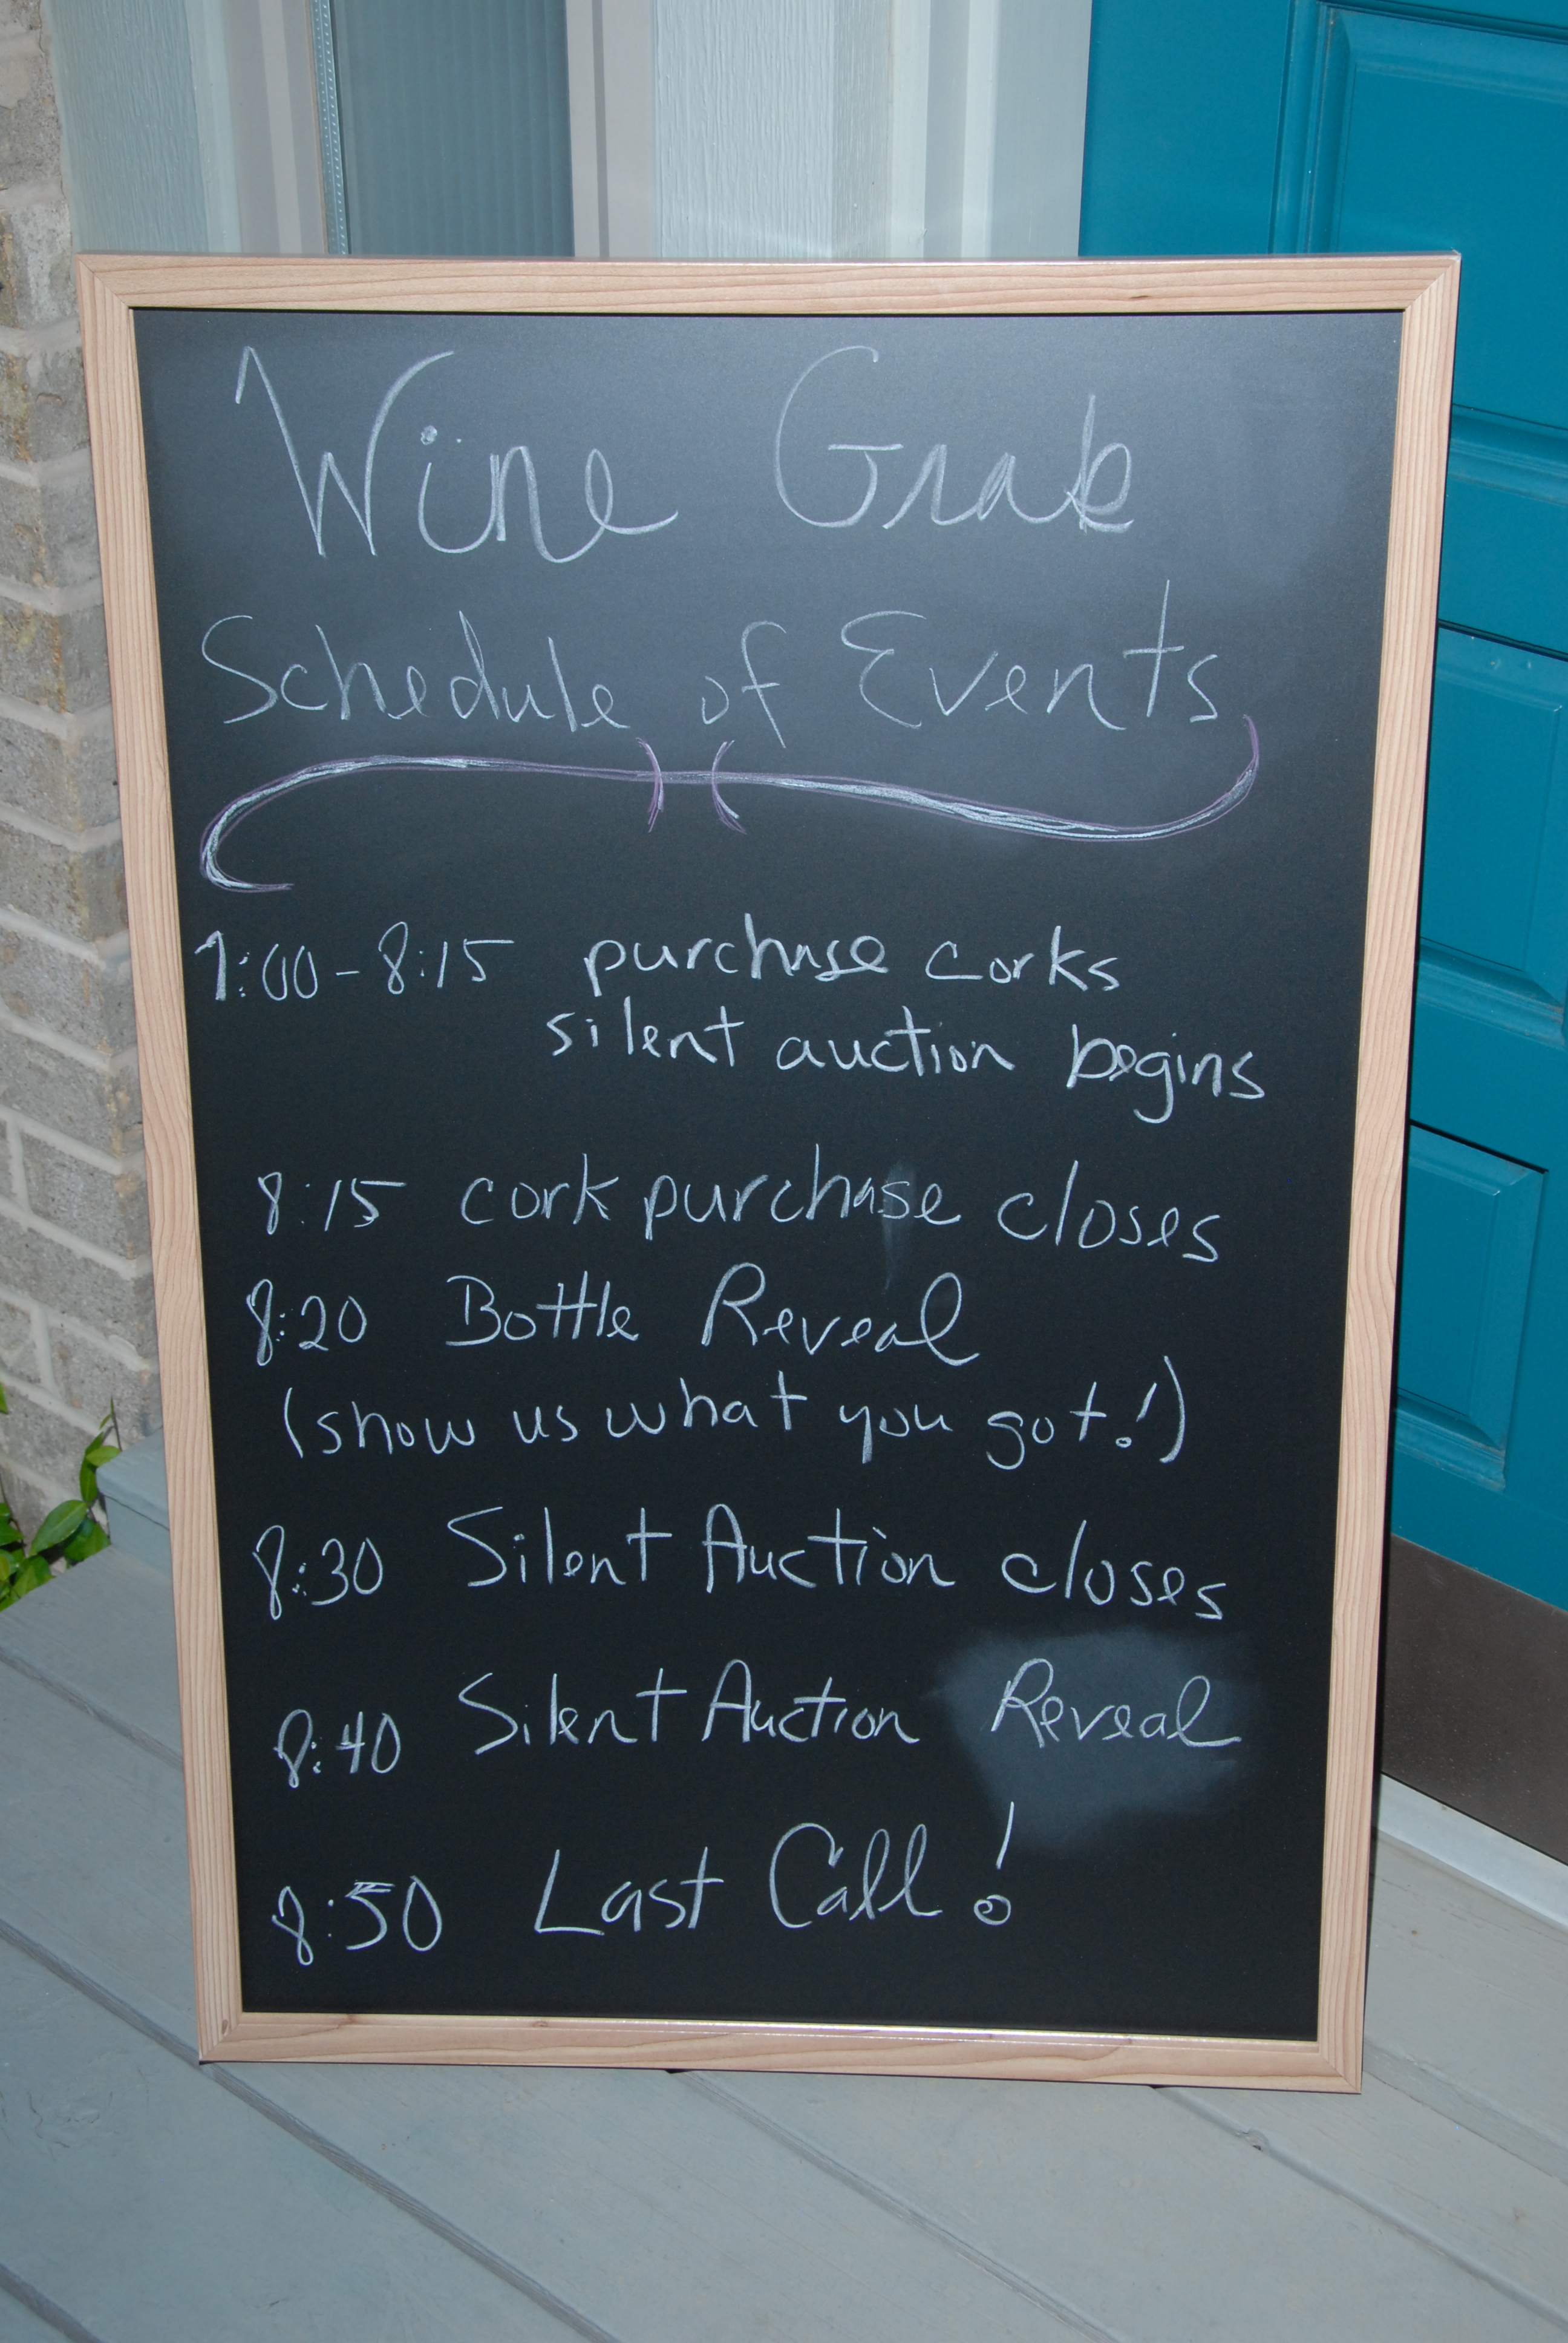 Wine Grab
Schedule of Events
7:00-8:15 purchase corks
silent auction begins
8:15 cork purchase closes
8:20 Bottle Reveal
(show us what you got!)
8:30 Silent Auction closes
8:40 Silent Auction Reveal
8:50 Last Call!